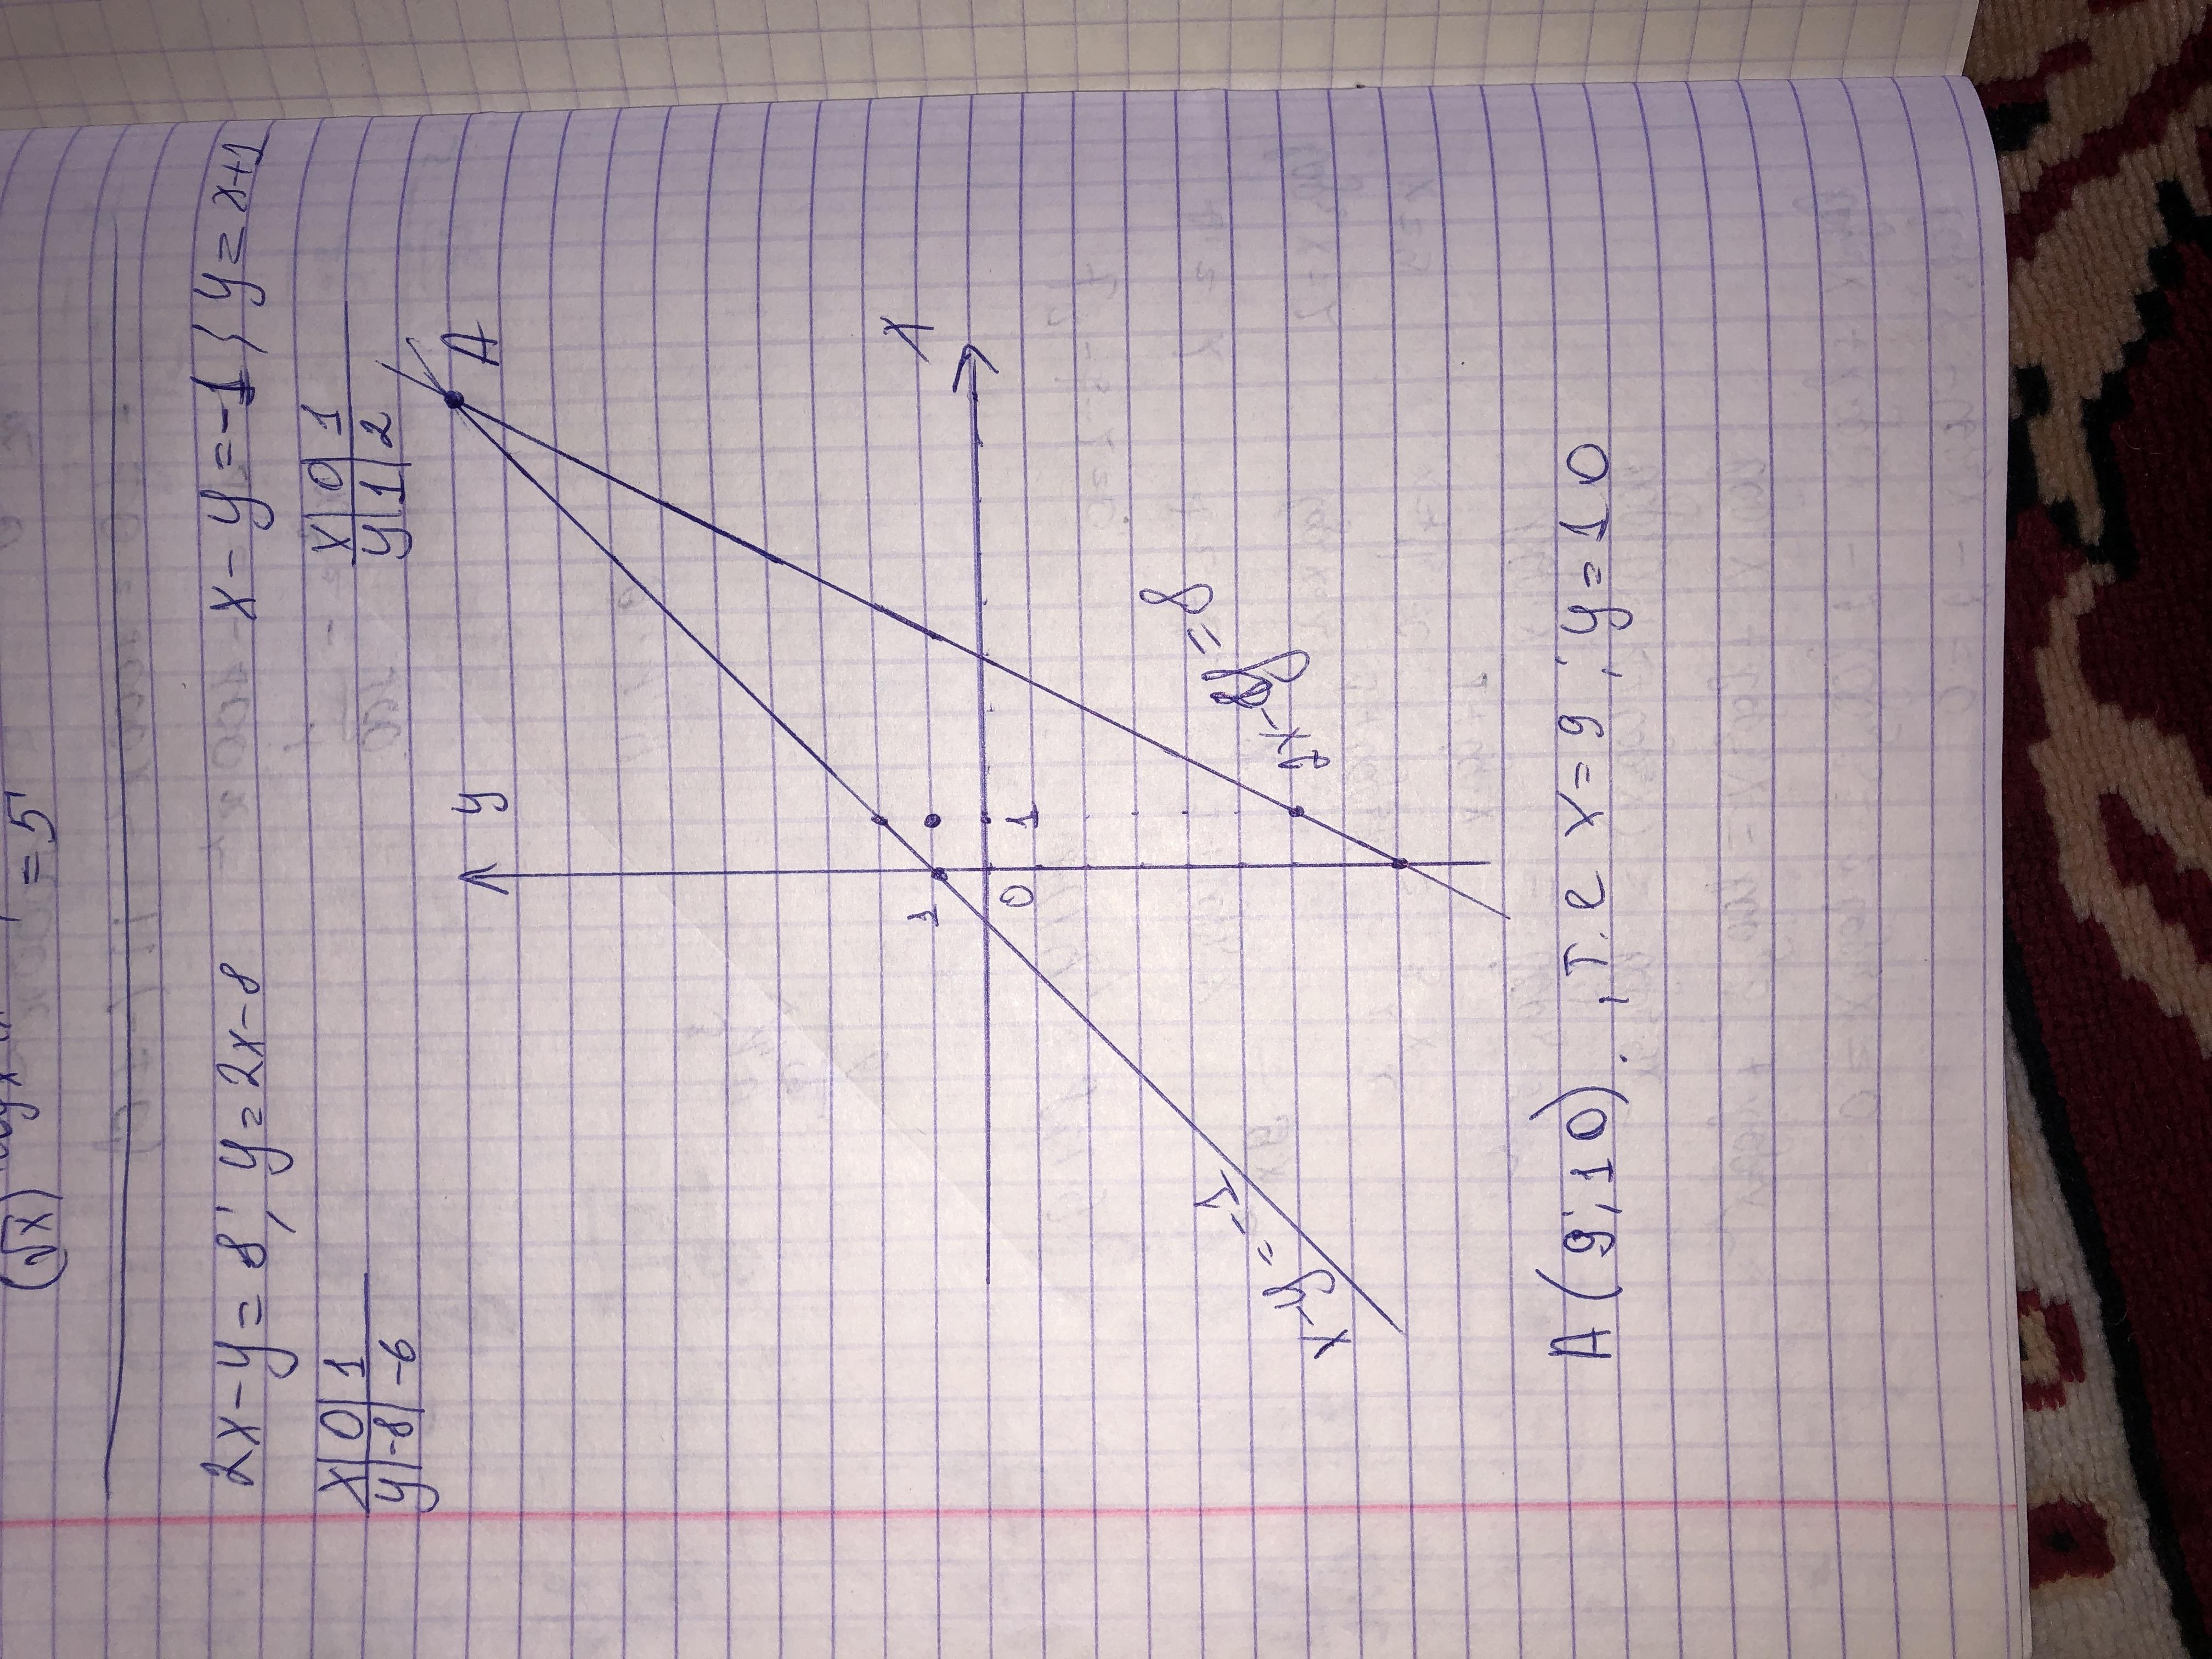 (√x) = 5
2x-y=8; y=2x-8 x-y=-1; y=x+1
x|0|1 x|0|1
y|-8|-6 y|1|2
y
A
x
1
0 1
2x-y=8
x-y=-1
A(9;10). , т.е x=9; y=10